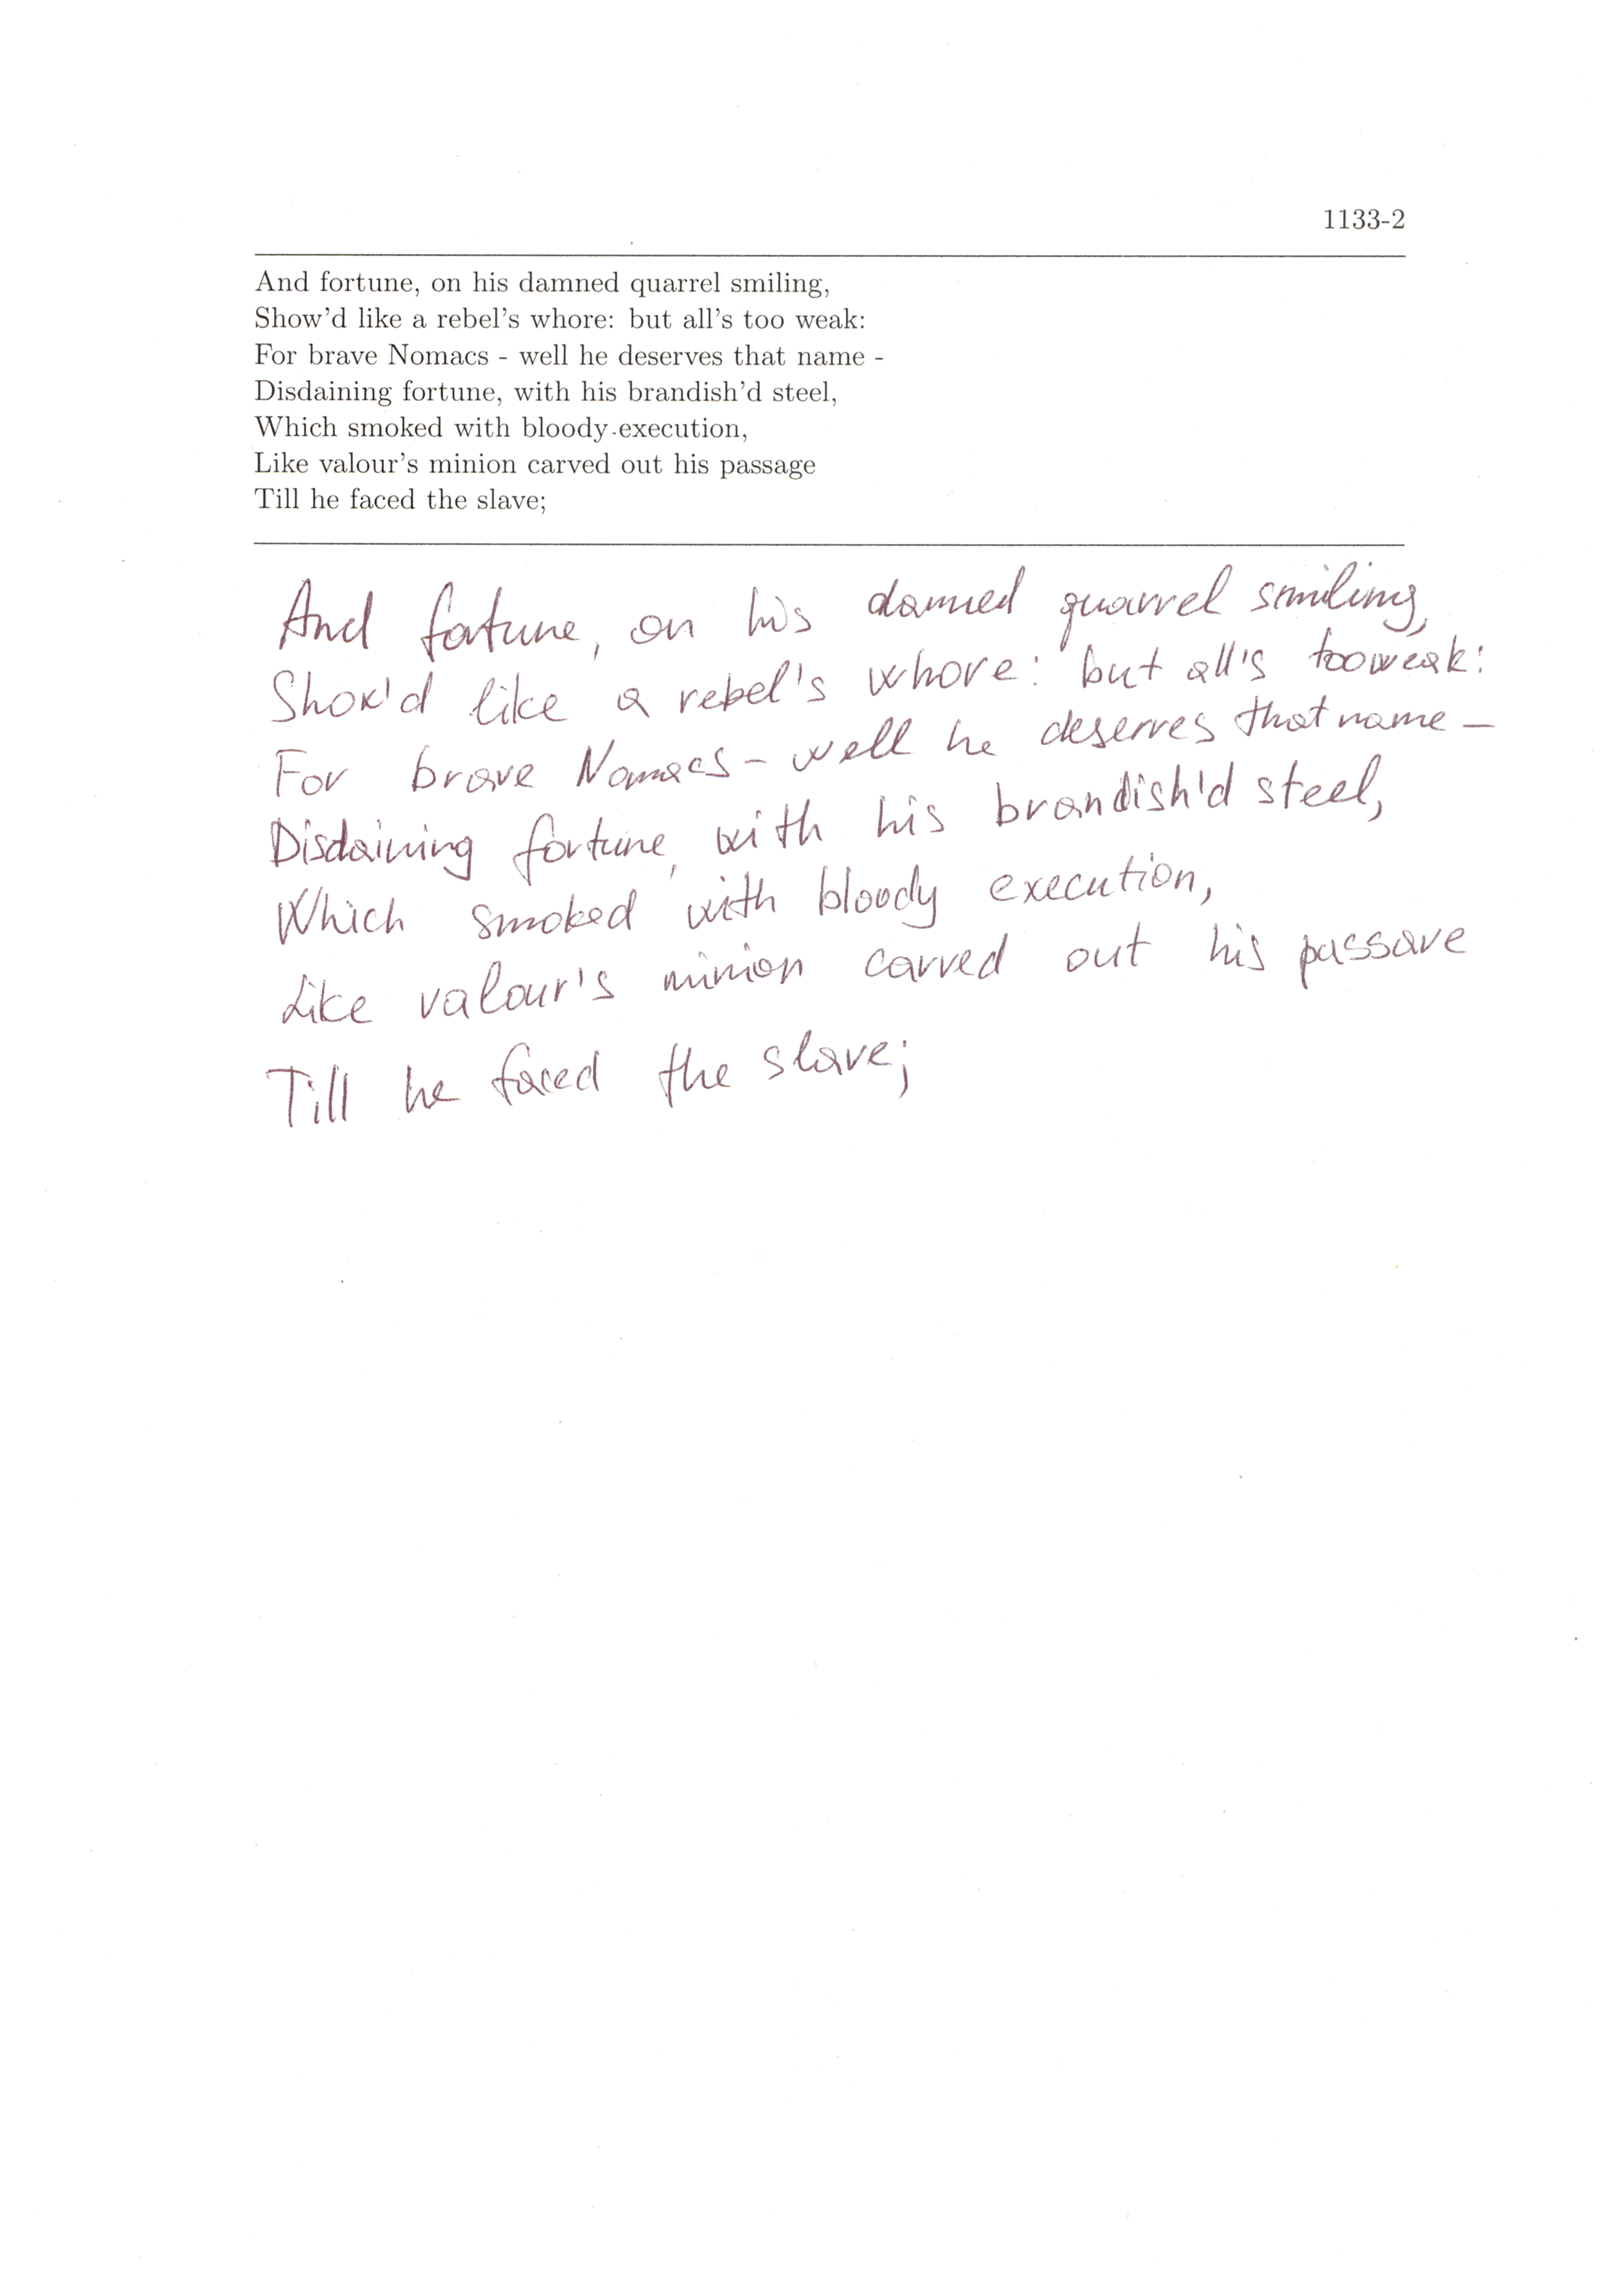 1133-2
And fortune, on his damned quarrel smiling,
Show'd like a rebel's whore: but all's too weak:
For brave Nomacs - well he deserves that name -
Disdaining fortune, with his brandish'd steel,
Which smoked with bloody execution,
Like valour's minion carved out his passage
Till he faced the slave;
And fortune, on his damned quarrel smiling,
Show'd like a rebel's whore: but all's tooweak:
For brave Nomacs - well he deserves that name -
Disdaining fortune, with his brandish'd steel,
Which smoked with bloody execution,
Like valour's minion carved out his passave
Till he faced the slave;